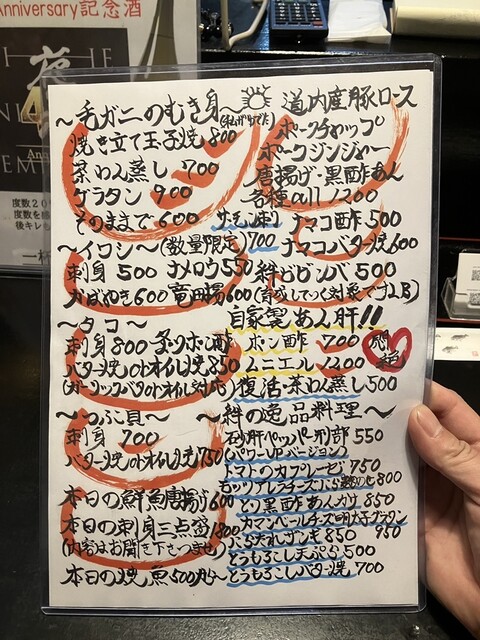 Anniversary記念酒
夜
度数20
度数を感
後キレ
一杯
～毛ガニのむき身～
焼き立て玉子焼 800
茶わん蒸し 700
グラタン 900
そのままで 600
～イワシ～(数量限定)
刺身 500 ナメロウ 550
かばやき 600 竜田揚 600
～タコ～
刺身 800
バター焼 850
～つぶ貝～
刺身 700
バター焼 750
本日の鮮魚唐揚 600
本日の刺身三点盛 1800
(内容はお聞き下さいませ)
本日の焼魚 500円～
道内産豚ロース
ポークチャップ
ポークジンジャー
唐揚げ・黒酢あん
各種all 1200
700
ナマコ酢 500
ナマコバター焼 600
絆ビビンバ 500
自家製あん肝!!
ポン酢 700
ムニエル 1200
悶絶
復活・茶わん蒸し 500
～絆の逸品料理～
砂肝ペッパー刑部 550
(パワーUPバージョン)
トマトのカプレーゼ 750
モッツアレラチーズ 800
とり黒酢あんかけ 850
カマンベールチーズ明太子グラタン
950
ザンギ 850
とうもろこし天ぷら 500
とうもろこしバター焼 700